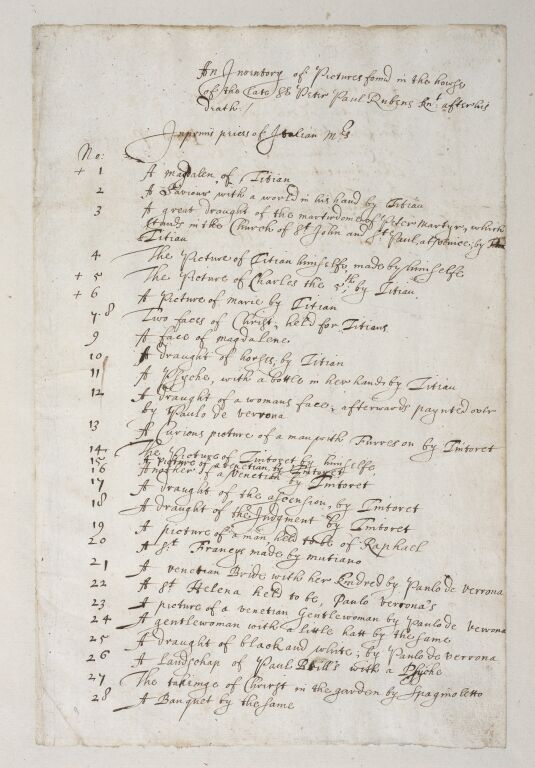 An Inventory of Pictures found in the howse
of the late Sr Peter Paul Rubens Knt after his
death /
Inprimis pieces of Italian Mrs
No:
+ 1 A magdalen of Titian
2 A Saviour with a world in his hand by Titian
3 A great draught of the martirdome of Peter Martyr, which
stands in the Church of St John and St Paul at Venice, by
Titian
4 The Picture of Titian himselfe made by himselfe
+ 5 The Picture of Charles the 5th by Titian
+ 6 A Picture of marie by Titian
7.8 Two faces of Christ, held for Titians
9 A face of magdalene
10 A draught of horses by Titian
11 A Psyche, with a bottle in her hand by Titian
12 A draught of a womans face, afterwards paynted over
by Paulo de verrona
13 A Curious picture of a man with Furres on by Tintoret
14 The Picture of Tintoret by himselfe
15 A Picture of a venetian by Tintoret
16 Another of a venetian by Tintoret
17 A draught of the ascension, by Tintoret
18 A draught of the Judgment by Tintoret
19 A picture of a man held to be of Raphael
20 A St Francys made by mutiano
21 A venetian Bride with her kindred by Paulo de verrona
22 A St Helena held to be, Paulo verrona's
23 A picture of a venetian Gentlewoman by Paulo de verrona
24 A gentlewoman with a little hatt by the same
25 A draught of black and white, by Paulo de verrona
26 A Landschap of Paul Brill's with a Psyche
27 The takinge of Christ in the garden by Spagnoletto
28 A Banquet by the same